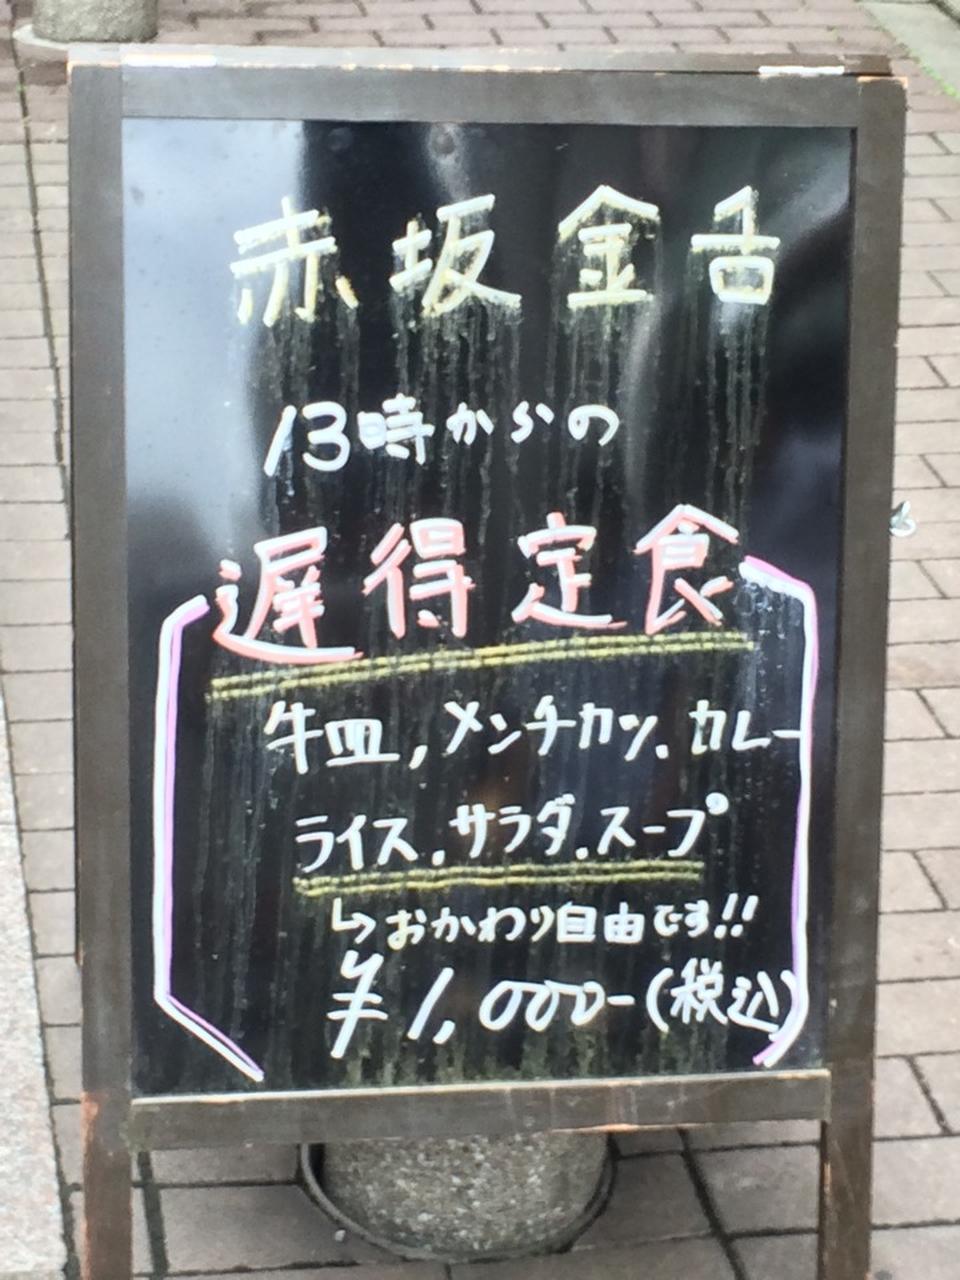 赤坂金舌
13時からの
遅得定食
牛皿,メンチカツ.カレー
ライス.サラダ.スープ
↳おかわり自由です!!
¥1,000-(税込)